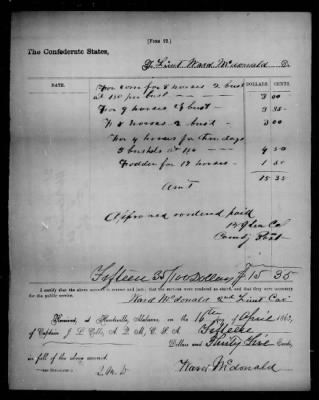 [FORM 22.]
The Confederate States,
To Lieut Ward McDonald Dr.
DATE. DOLLARS. CENTS.
For corn for 8 horses 2 bust
at 150 per bust 3 00
For 9 horses 2 bust 3 85
8 horses 2 bust 3 00
For 4 horses for two days
3 bushels at 4 50
Fodder for 12 horses 1 50
Am't 15 35
Approved & ordered paid
Fifteen 35/100 Dollars $15 35
I certify that the above account is correct and just; that the services were rendered as stated, and that they were necessary
for the public service.
Ward McDonald 2nd Lieut Cav
Received, at Huntsville, Alabama, on the 16th of April 1862,
of Captain J. L. Cobbs, A. Q. M., C. S. A. Fifteen
Dollars and Thirty Five Cents,
in full of the above account.
Ward McDonald